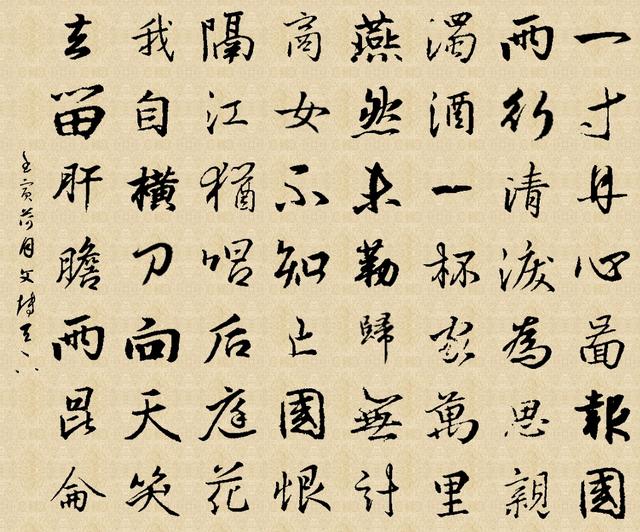 一寸丹心圖報國
兩行清淚為思親
濁酒一杯家萬里
燕然未勒歸無計
商女不知亡國恨
隔江猶唱后庭花
我自橫刀向天笑
去留肝膽兩昆侖
壬寅荷月文博